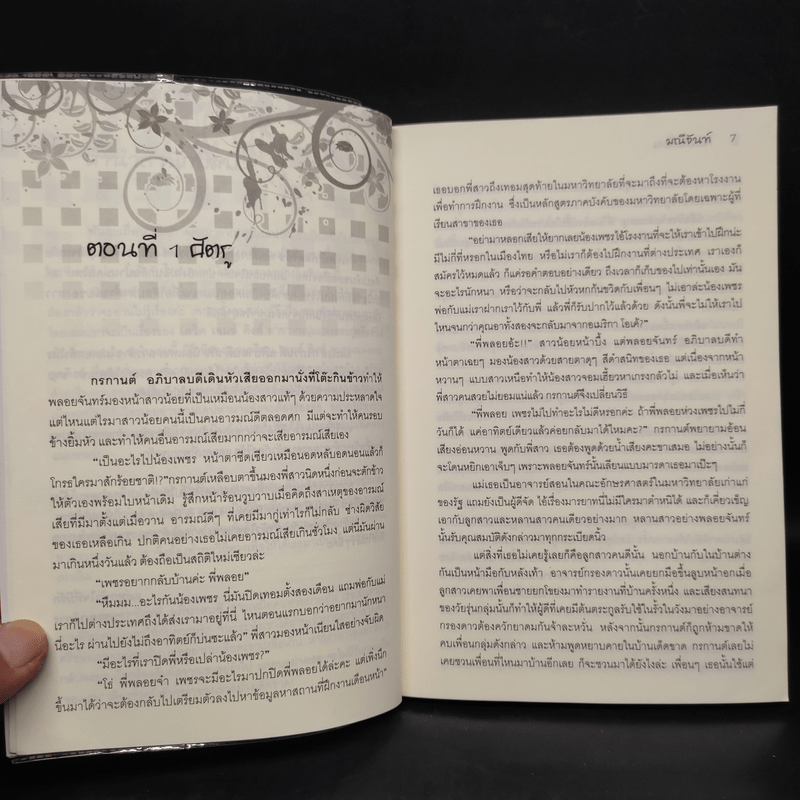 ตอนที่ 1 ศัตรู
กรกานต์ อภิบาลบดีเดินหัวเสียออกมานั่งที่โต๊ะกินข้าวทำให้
พลอยจันทร์มองหน้าสาวน้อยที่เป็นเหมือนน้องสาวแท้ๆ ด้วยความประหลาดใจ
แต่ไหนแต่ไรมาสาวน้อยคนนี้เป็นคนอารมณ์ดีตลอดศก มีแต่จะทำให้คนรอบ
ข้างยิ้มหัว และทำให้คนอื่นอารมณ์เสียมากกว่าจะเสียอารมณ์เสียเอง
“เป็นอะไรไปน้องเพชร หน้าตาซีดเซียวเหมือนอดหลับอดนอนแล้วก็
โกรธใครมาสักร้อยชาติ!?”กรกานต์เหลือบตาขึ้นมองพี่สาวนิดหนึ่งก่อนจะตักข้าว
ให้ตัวเองพร้อมใบหน้าเดิม รู้สึกหน้าร้อนวูบวาบเมื่อคิดถึงสาเหตุของอารมณ์
เสียที่มีมาตั้งแต่เมื่อวาน อารมณ์ดีๆ ที่เคยมีมากู่เท่าไรก็ไม่กลับ ช่างผิดวิสัย
ของเธอเหลือเกิน ปกติคนอย่างเธอไม่เคยอารมณ์เสียเกินชั่วโมง แต่นี่มันผ่าน
มาเกินหนึ่งวันแล้ว ต้องถือเป็นสถิติใหม่เชียวล่ะ
“เพชรอยากกลับบ้านค่ะ พี่พลอย”
“หืมมม...อะไรกันน้องเพชร นี่มันปิดเทอมตั้งสองเดือน แถมพ่อกับแม่
เราก็ไปต่างประเทศถึงได้ส่งเรามาอยู่ที่นี่ ไหนตอนแรกบอกว่าอยากมานักหนา
นี่อะไร ผ่านไปยังไม่ถึงอาทิตย์ก็บ่นซะแล้ว” พี่สาวมองหน้าเนียนใสอย่างจับผิด
“มีอะไรที่เราปิดพี่หรือเปล่าน้องเพชร?”
“โธ่ พี่พลอยจ๋า เพชรจะมีอะไรมาปกปิดพี่พลอยได้ล่ะคะ แต่เพิ่งนึก
ขึ้นมาได้ว่าจะต้องกลับไปเตรียมตัวลงไปหาข้อมูลหาสถานที่ฝึกงานเดือนหน้า”
มณีจันท์ 7
เธอบอกพี่สาวถึงเทอมสุดท้ายในมหาวิทยาลัยที่จะมาถึงที่จะต้องหาโรงงาน
เพื่อทำการฝึกงาน ซึ่งเป็นหลักสูตรภาคบังคับของมหาวิทยาลัยโดยเฉพาะผู้ที่
เรียนสาขาของเธอ
“อย่ามาหลอกเสียให้ยากเลยน้องเพชร ไอ้โรงงานที่จะให้เราเข้าไปฝึกน่ะ
มีไม่กี่ที่หรอกในเมืองไทย หรือไม่เราก็ต้องไปฝึกงานที่ต่างประเทศ เราเองก็
สมัครไว้หมดแล้ว ก็แค่รอคำตอบอย่างเดียว ถึงเวลาก็เก็บของไปเท่านั้นเอง มัน
จะอะไรนักหนา หรือว่าจะกลับไปหัวหกก้นขวิดกับเพื่อนๆ ไม่เอาล่ะน้องเพชร
พ่อกับแม่เราฝากเราไว้กับพี่ แล้วพี่ก็รับปากไว้แล้วด้วย ดังนั้นพี่จะไม่ให้เราไป
ไหนจนกว่าคุณอาทั้งสองจะกลับมาจากอเมริกา โอเค้?”
“พี่พลอยอ้ะ!!” สาวน้อยหน้าบึ้ง แต่พลอยจันทร์ อภิบาลบดีทำ
หน้าตาเฉยๆ มองน้องสาวด้วยสายตาดุๆ สีดำสนิทของเธอ แต่เนื่องจากหน้า
หวานๆ แบบสาวเหนือทำให้น้องสาวจอมเฮี้ยวหาเกรงกลัวไม่ และเมื่อเห็นว่า
พี่สาวคนสวยไม่ยอมแน่แล้ว กรกานต์จึงเปลี่ยนวิธี
“พี่พลอย เพชรไม่ไปทำอะไรไม่ดีหรอกค่ะ ถ้าพี่พลอยห่วงเพชรไปไม่กี่
วันก็ได้ แค่อาทิตย์เดียวแล้วค่อยกลับมาได้ไหมคะ?” กรกานต์พยายามอ้อน
เสียงอ่อนหวาน พูดกับพี่สาว เธอต้องพูดด้วยน้ำเสียงคะขาเสมอ ไม่อย่างนั้นก็
จะโดนหยิกเอาเจ็บๆ เพราะพลอยจันทร์นั้นเลียนแบบมารดาเธอมาเป๊ะๆ
แม่เธอเป็นอาจารย์สอนในคณะอักษรศาสตร์ในมหาวิทยาลัยเก่าแก่
ของรัฐ แถมยังเป็นผู้ดีจัด ไอ้เรื่องมารยาทนี่ไม่มีใครมาตำหนิได้ และก็เคี่ยวเข็ญ
เอากับลูกสาวและหลานสาวคนเดียวอย่างมาก หลานสาวอย่างพลอยจันทร์
นั้นรับคุณสมบัติดังกล่าวมาทุกกระเบียดนิ้ว
แต่สิ่งที่เธอไม่เคยรู้เลยก็คือลูกสาวคนดีนั้น นอกบ้านกับในบ้านต่าง
กันเป็นหน้ามือกับหลังเท้า อาจารย์กรองดาวนั้นเคยยกมือขึ้นลูบหน้าอกเมื่อ
ลูกสาวเคยพาเพื่อนชายยกโขยงมาทำรายงานที่บ้านครั้งหนึ่ง และเสียงสนทนา
ของวัยรุ่นกลุ่มนั้นก็ทำให้ผู้ดีที่เคยมีต้นตระกูลรับใช้ในรั้วในวังมาอย่างอาจารย์
กรองดาวต้องควักยาดมกันจ้าละหวั่น หลังจากนั้นกรกานต์ก็ถูกห้ามขาดให้
คบเพื่อนกลุ่มดังกล่าว และห้ามพูดหยาบคายในบ้านเด็ดขาด กรกานต์เลยไม่
เคยชวนเพื่อนที่ไหนมาบ้านอีกเลย ก็จะชวนมาได้ยังไงล่ะ เพื่อนๆ เธอนั้นใช้แต่